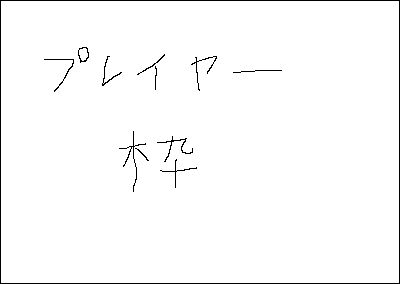 プレイヤー
枠